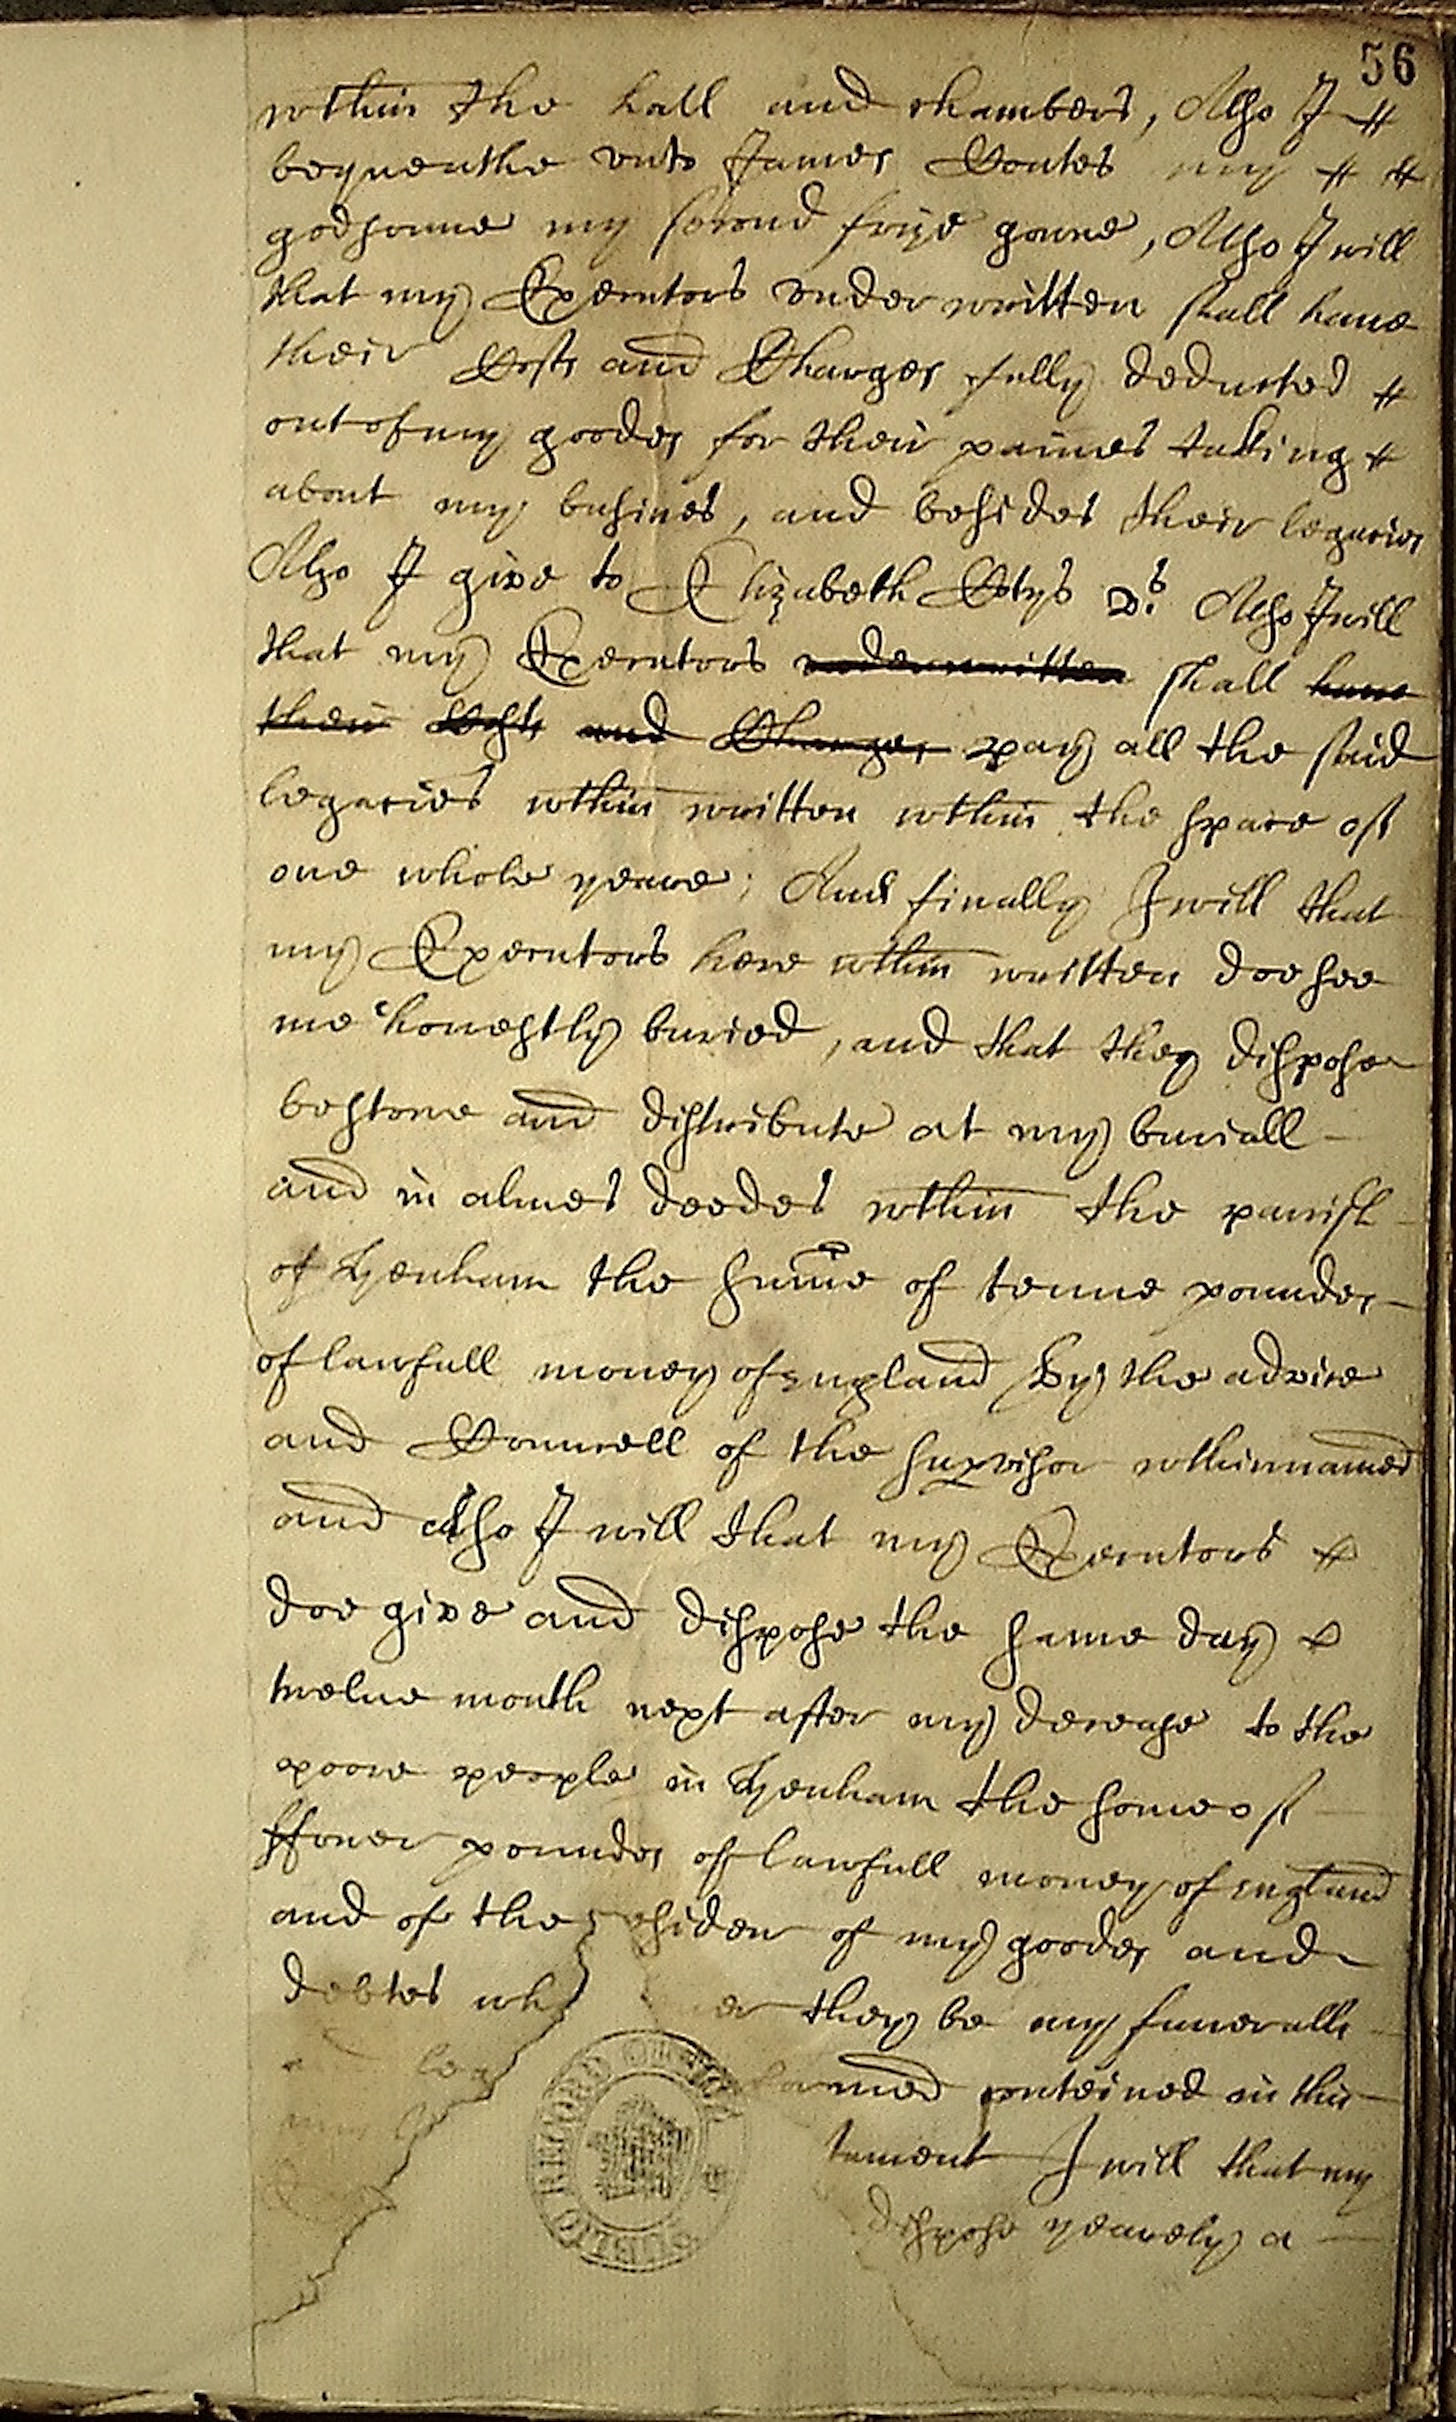 56
wthin the hall and chambers, Also I
bequeathe vnto James Coates my
godsonne my second frize gowne, Also I will
that my Executors vnder written shall haue
their Costs and Charges fully deducted
out of my goodes for their paines taking
about my busines, and besides their legacies
Also I give to Elizabeth Cotys 2s. Also I will
that my Executors vnderwritten shall haue
their Costs and Charges pay all the said
legacies wthin written wthin the space of
one whole yeare; And finally I will that
my Executors here wthin written doe see
me honestly buried, and that they dispose
bestowe and distribute at my buriall
and in almes deedes wthin the parish
of Hyenham the summe of tenne poundes
of lawfull money of England By the advice
and Councell of the supvisor wthinnamed
and also I will that my Executors
doe give and dispose the same day
twelue month next after my decease to the
poore people in Hyenham the some of
ffower poundes of lawfull money of England
and of the residew of my goodes and
debtes wh er they be my funeralls
leg formed conteined in this
tament I will that my
dispose yearely a
PUBLIC RECORD OFFICE